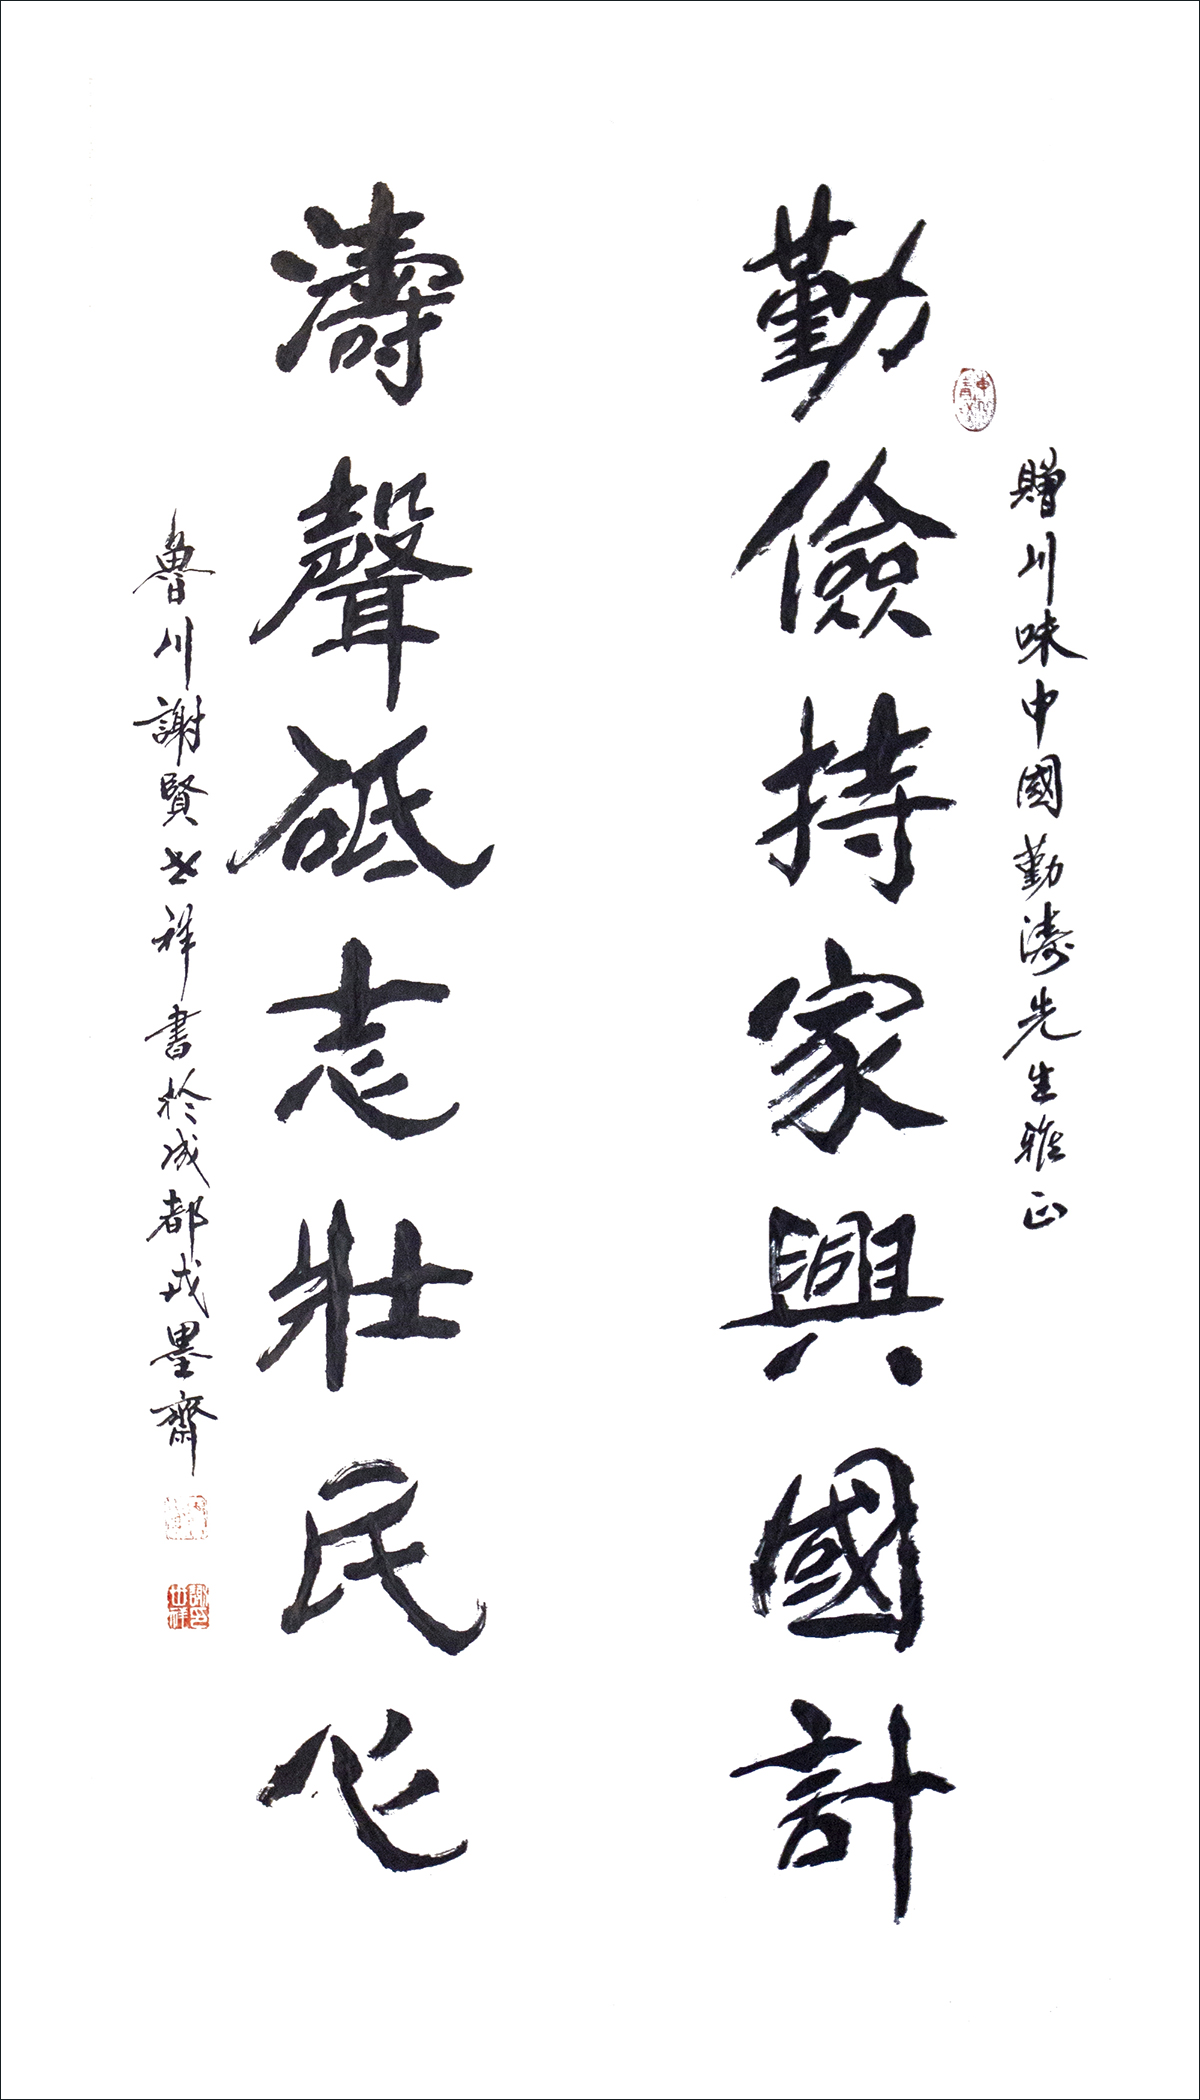 贈川味中國勤濤先生雅正
勤儉持家興國計
濤聲砥志壯民心
魯川謝賢世祥書於成都戎墨齋
謝印世祥